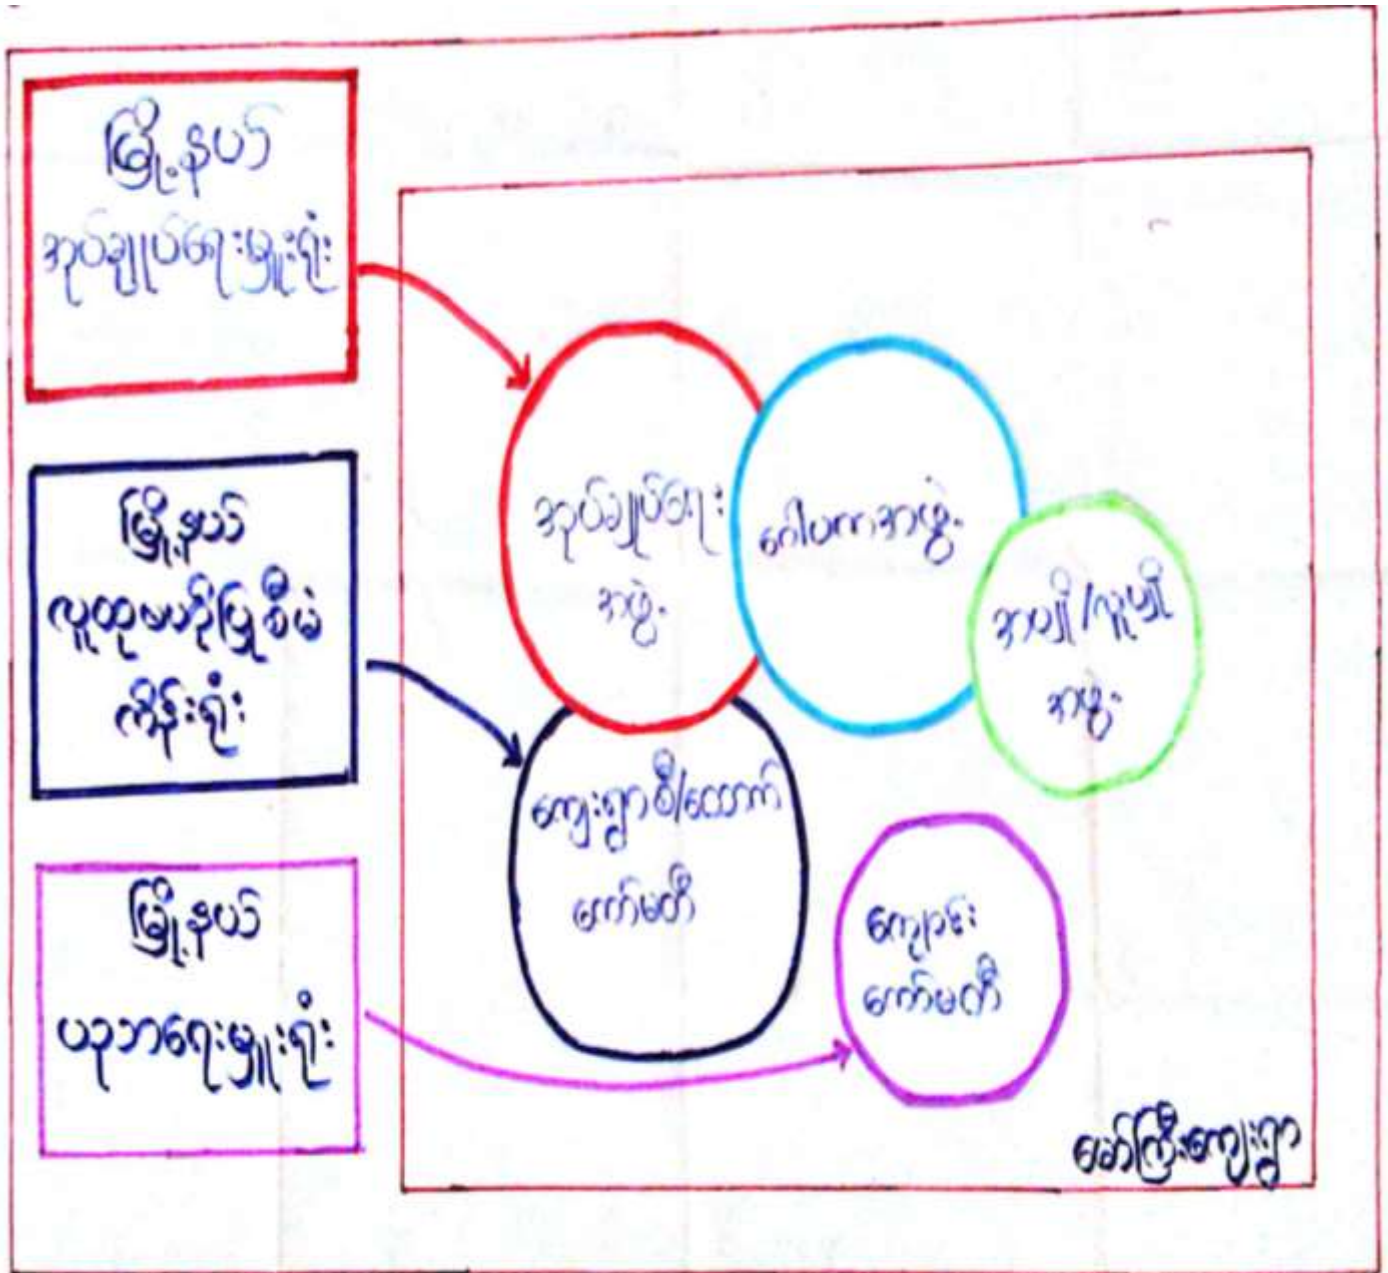 မြို့နယ်
အုပ်ချုပ်ရေးမှူးရုံး
မြို့နယ်
လူထုမဟုတ်ပြုစီမံ
ကိန်းရုံး
မြို့နယ်
ပညာရေးမှူးရုံး
အုပ်ချုပ်ရေး
အဖွဲ့
ဂေါပကအဖွဲ့
အပျို/လူပျို
အဖွဲ့
ကျေးရွာစီ/ထောက်
ကော်မတီ
ကျောင်း
ကော်မတီ
ကျေးရွာ